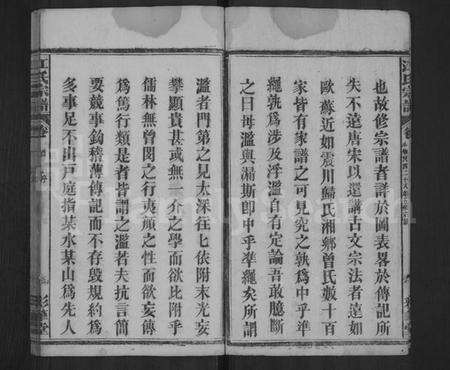 也故修宗譜者譜於圖表畧於傳記所
失不遠唐宋以還講古文宗法者遠如
歐蘇近如震川歸氏湘鄉曾氏數十百
家皆有家譜之可見究之孰為中乎準
繩孰為涉及浮濫自有定論吾敢臆斷
之曰毋濫與漏斯卽中乎準繩矣所謂
濫者門第之見太深往匕依附末光妄
攀顯貴甚或無一介之學而欲比附乎
儒林無曾閔之行夷顏之性而欲妄傳
為篤行類是者皆譜之濫者夫抗言簡
要競事鉤稽薄傳記而不存毀規約為
多事足不出戶庭指某水某山為先人
江氏宗譜
卷
彩蓮堂
FamilySearch